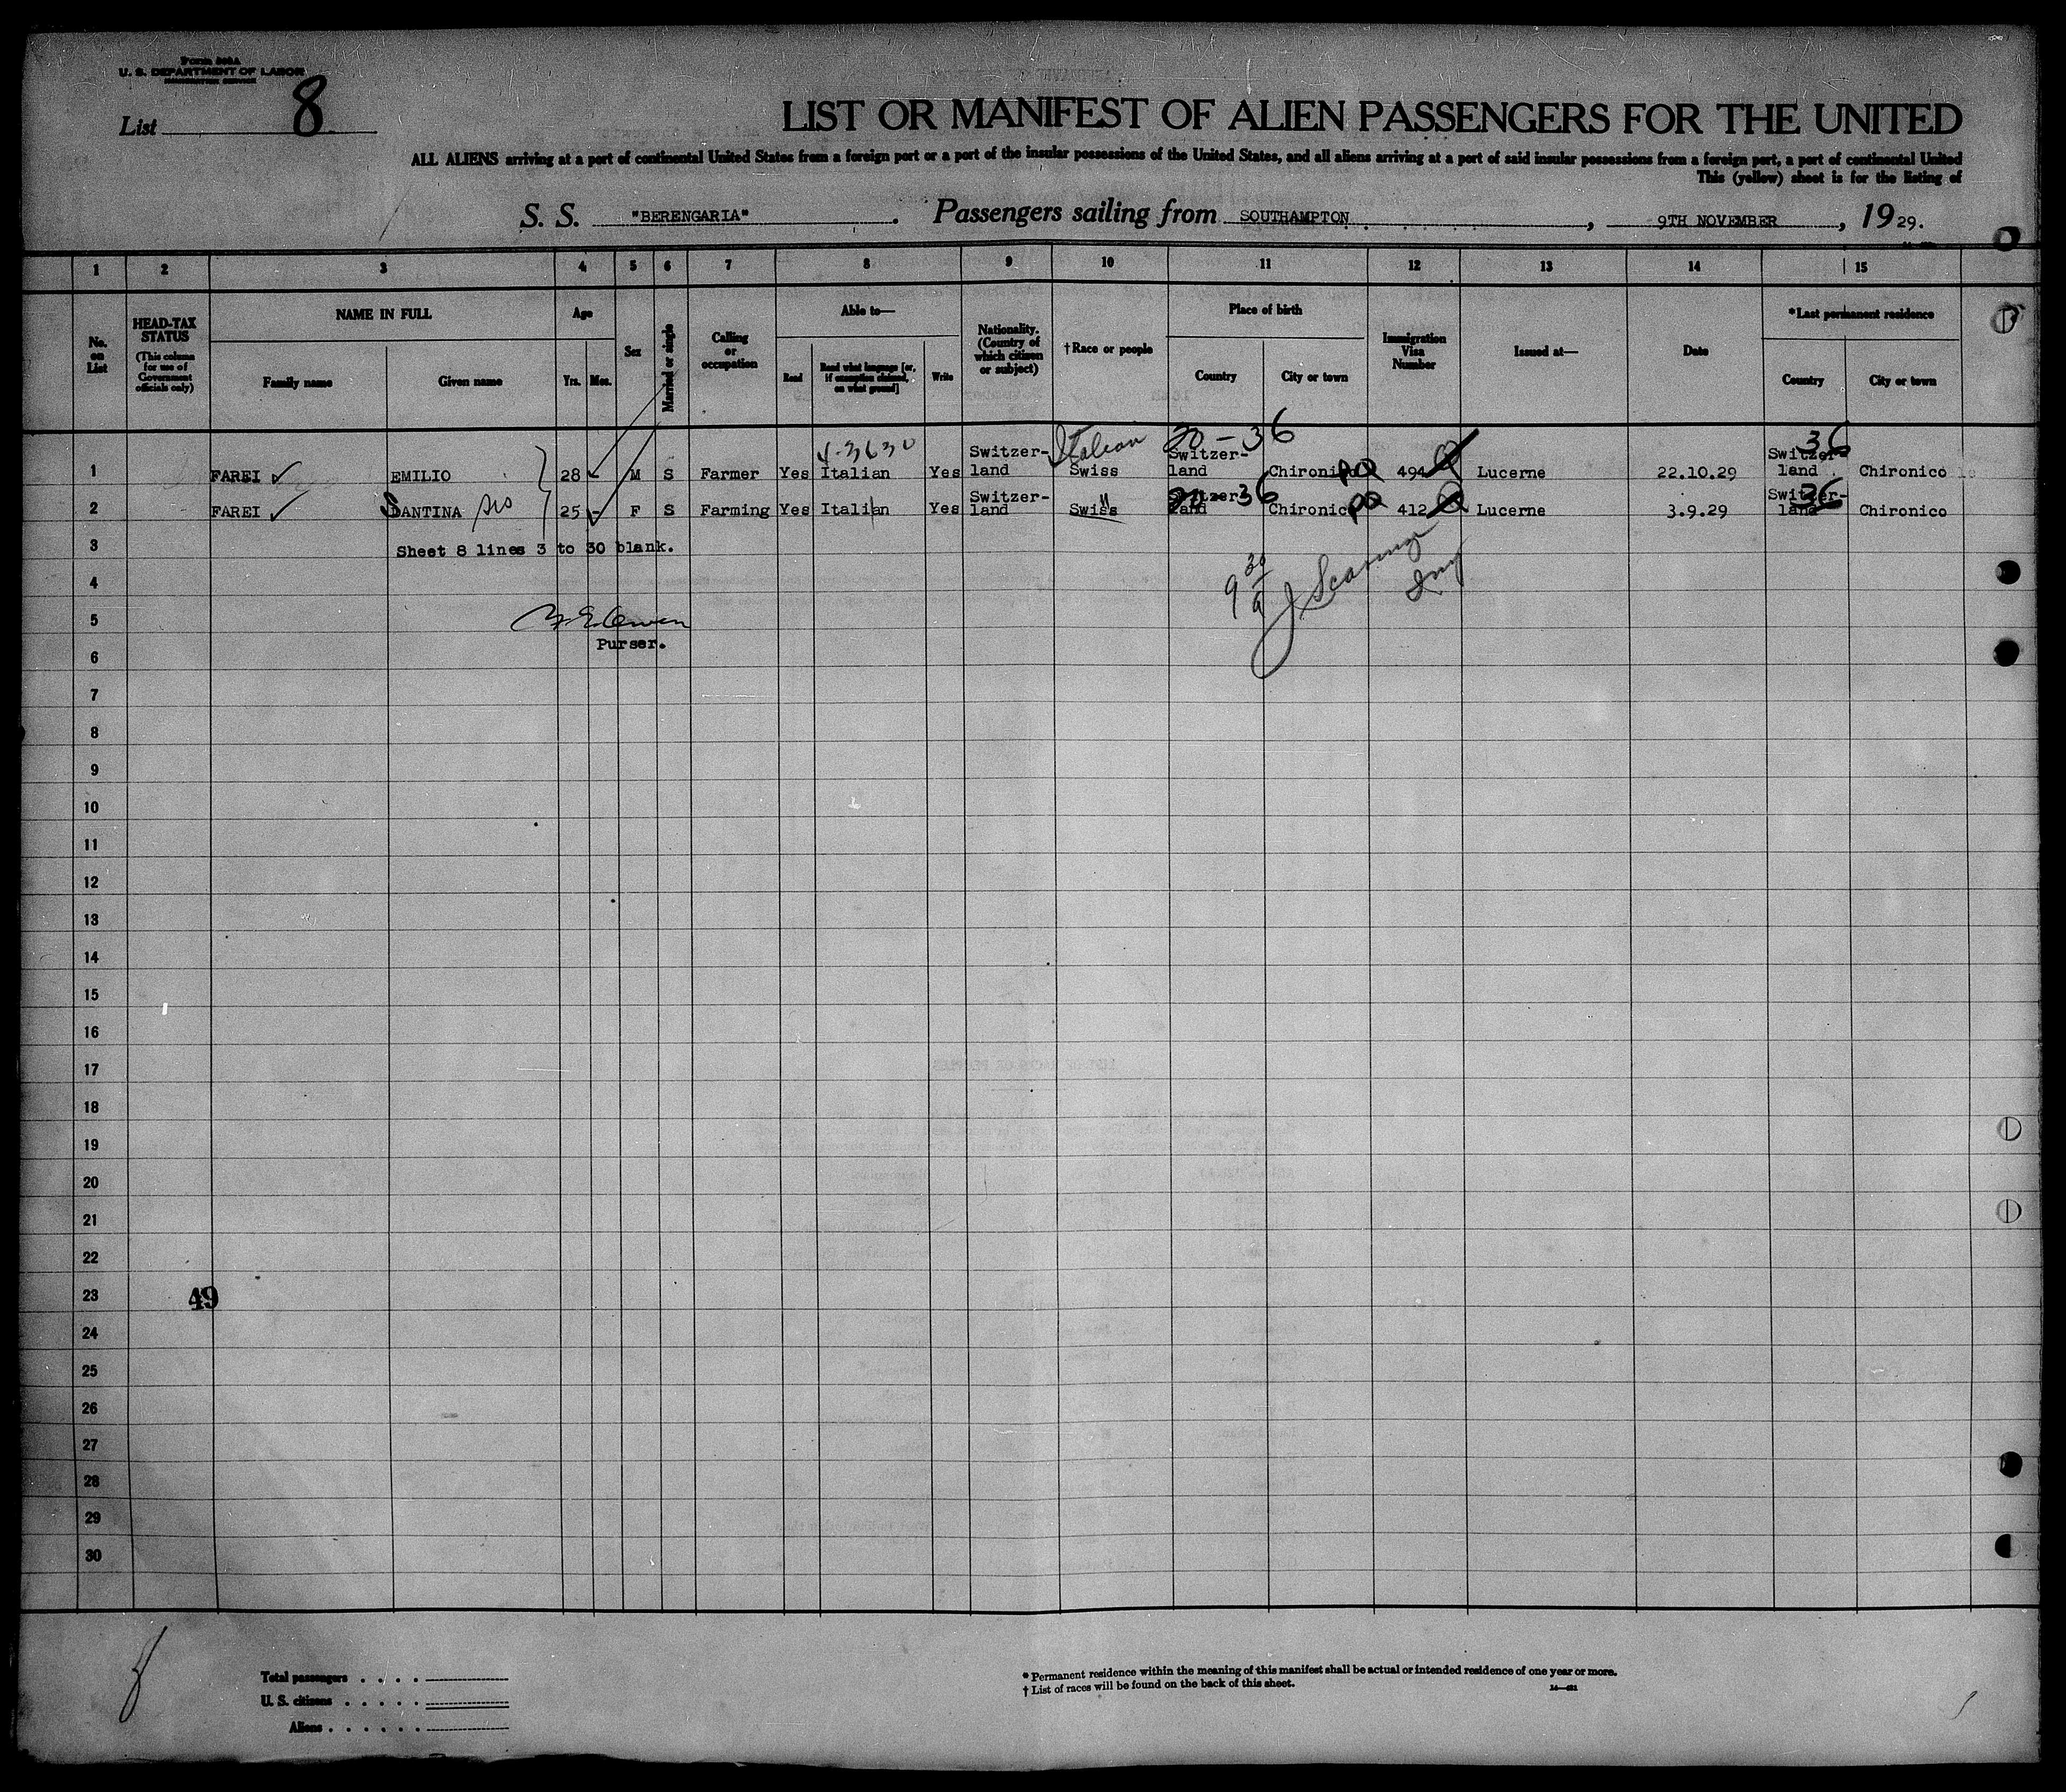 Form 500A
U. S. DEPARTMENT OF LABOR
IMMIGRATION SERVICE
List 8
LIST OR MANIFEST OF ALIEN PASSENGERS FOR THE UNITED
ALL ALIENS arriving at a port of continental United States from a foreign port or a port of the insular possessions of the United States, and all aliens arriving at a port of said insular possessions from a foreign port, a port of continental United
This (yellow) sheet is for the listing of
S. S. "BERENGARIA". Passengers sailing from SOUTHAMPTON, 9TH NOVEMBER, 1929.
1 2 3 4 5 6 7 8 9 10 11 12 13 14 15
No. on List
HEAD-TAX STATUS (This column for use of Government officials only)
NAME IN FULL
Family name Given name
Age
Yrs. Mos.
Sex
Married or single
Calling or occupation
Able to—
Read Read what language [or, if exemption claimed, on what ground] Write
Nationality. (Country of which citizen or subject)
†Race or people
Place of birth
Country City or town
Immigration Visa Number
Issued at—
Date
*Last permanent residence
Country City or town
4-3630 Italian 20-36 36
1 FAREI EMILIO 28 M S Farmer Yes Italian Yes Switzer-land Swiss Switzer-land Chironico 494 Lucerne 22.10.29 Switzer-land Chironico
2 FAREI SANTINA sis 25 - F S Farming Yes Italian Yes Switzer-land Swiss " Switzer-land 36 Chironico 412 Lucerne 3.9.29 Switzer-land 36 Chironico
3 Sheet 8 lines 3 to 30 blank.
4
5
Purser.
6
7
8
9
10
11
12
13
14
15
16
17
18
19
20
21
22
23 49
24
25
26
27
28
29
30
Total passengers
U. S. citizens
Aliens
* Permanent residence within the meaning of this manifest shall be actual or intended residence of one year or more.
† List of races will be found on the back of this sheet.